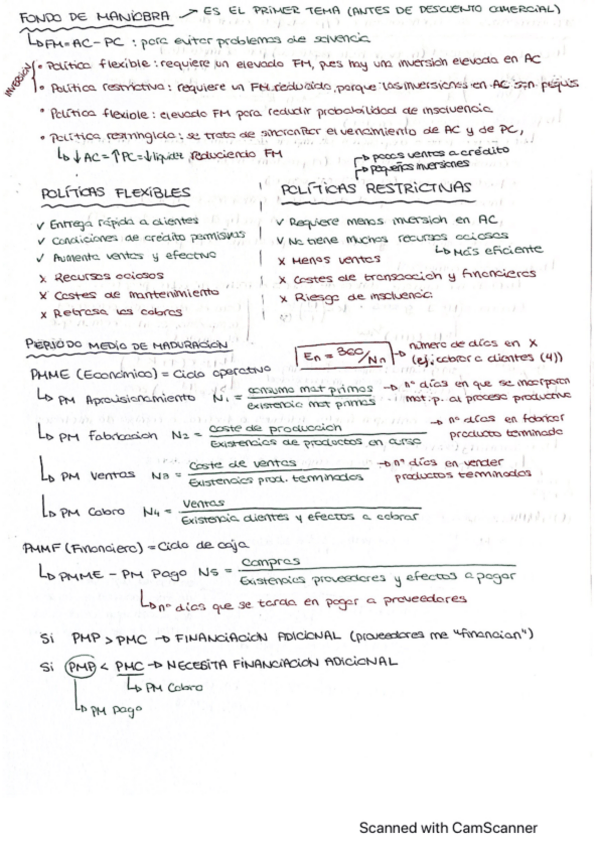 FONDO DE MANIOBRA → ES EL PRIMER TEMA (ANTES DE DESCUENTO COMERCIAL)
↳ FM = AC - PC : para evitar problemas de solvencia
INVERSIÓN
• Política flexible : requiere un elevado FM, pues hay una inversión elevada en AC
• Política restrictiva : requiere un FM reducido, porque las inversiones en AC son pequeñas
• Política flexible : elevado FM para reducir probabilidad de insolvencia
• Política restringida : se trata de sincronizar el vencimiento de AC y de PC,
↳ ↓AC = ↑PC = ↓liquidez, reduciendo FM
→ pocas ventas a crédito
→ pequeñas inversiones
POLÍTICAS FLEXIBLES
✓ Entrega rápida a clientes
✓ Condiciones de crédito permisivas
✓ Aumenta ventas y efectivo
x Recursos ociosos
x Costes de mantenimiento
x Retrasa los cobros
POLÍTICAS RESTRICTIVAS
✓ Requiere menos inversión en AC
✓ No tiene muchos recursos ociosos
↳ Más eficiente
x Menos ventas
x Costes de transacción y financieros
x Riesgo de insolvencia
PERIODO MEDIO DE MADURACIÓN
En = 360/Nn → número de días en x
(ej: cobrar a clientes (4))
PMME (Económico) = Ciclo operativo
↳ PM Aprovisionamiento N1 = consumo mat primas / existencia mat primas → nº días en que se incorporan
mat. p. al proceso productivo
↳ PM Fabricación N2 = coste de producción / Existencias de productos en curso → nº días en fabricar
producto terminado
↳ PM Ventas N3 = Coste de ventas / Existencias prod. terminados → nº días en vender
productos terminados
↳ PM Cobro N4 = Ventas / Existencia clientes y efectos a cobrar
PMMF (Financiero) = Ciclo de caja
↳ PMME - PM Pago N5 = Compras / Existencias proveedores y efectos a pagar
↳ nº días que se tarda en pagar a proveedores
Si PMP > PMC → FINANCIACIÓN ADICIONAL (proveedores me "financian")
Si PMP < PMC → NECESITA FINANCIACIÓN ADICIONAL
↳ PM Cobro
↳ PM Pago
Scanned with CamScanner